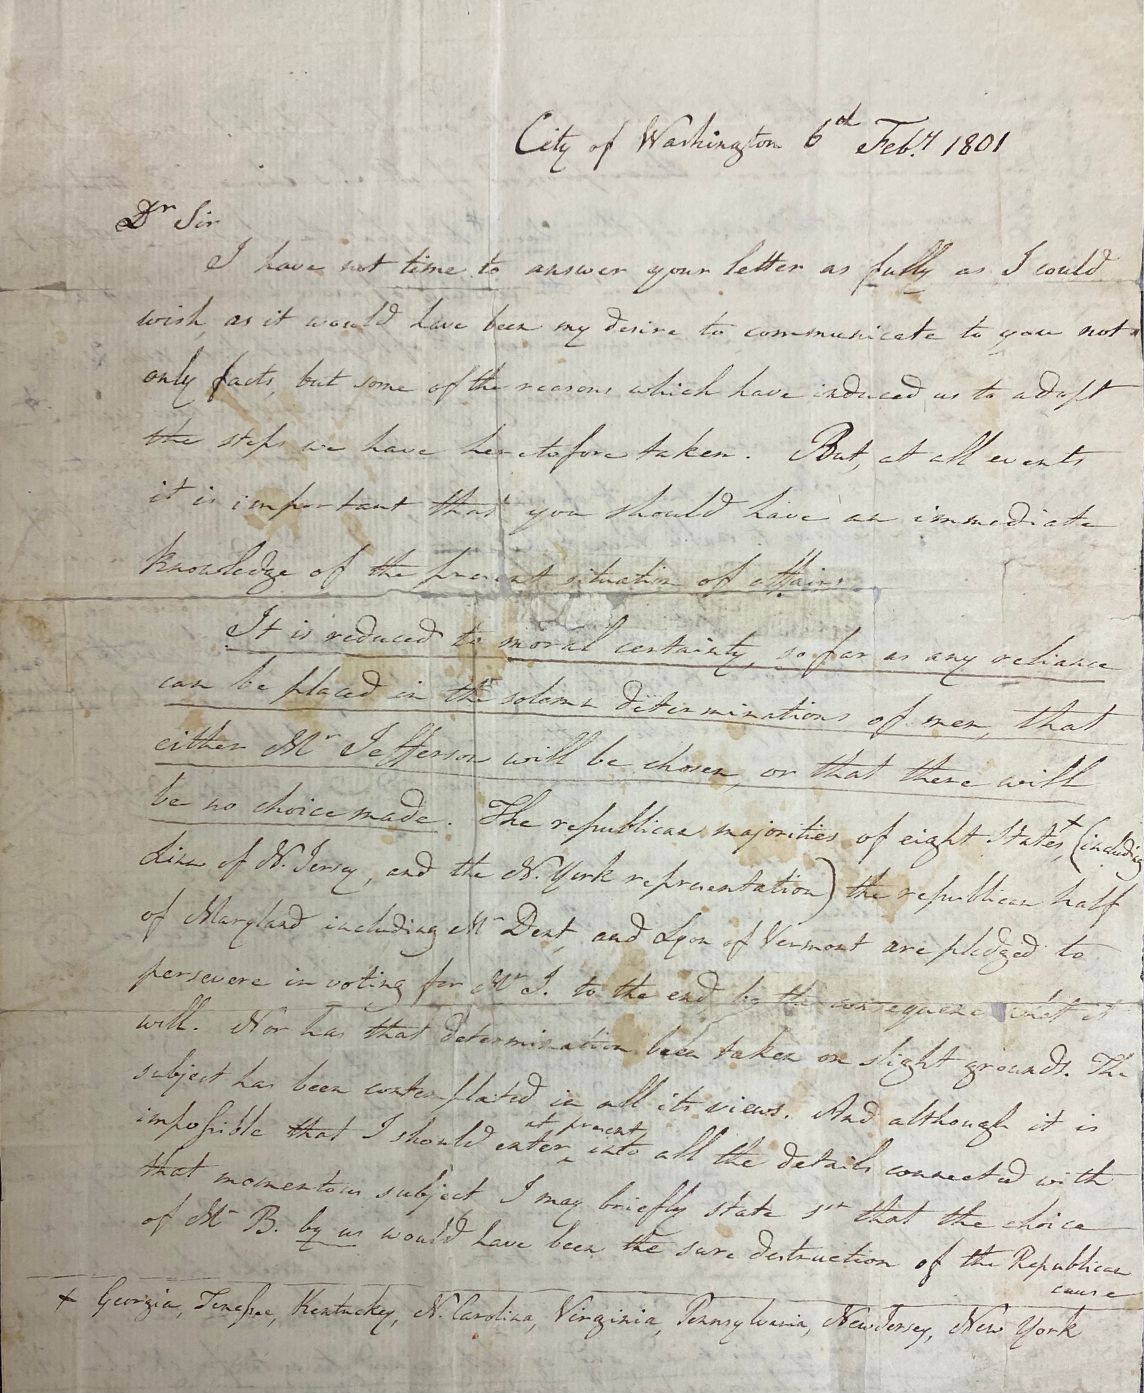 City of Washington 6th Feby 1801
Dr Sir
I have not time to answer your letter as fully as I could
wish, as it would have been my desire to communicate to you not
only facts, but some of the reasons which have induced us to adopt
the steps we have heretofore taken. But, at all events
it is important that you should have an immediate
knowledge of the present situation of affairs.
It is reduced to moral certainty, so far as any reliance
can be placed in the solemn determinations of men, that
either Mr Jefferson will be chosen, or that there will
be no choice made. The republican majorities of eight States,+ (including
Linn of N. Jersey, and the N. York representation) the republican half
of Maryland including Mr Dent, and Lyon of Vermont are pledged to
persevere in voting for Mr J. to the end be the consequence what it
will. Nor has that determination been taken on slight grounds. The
subject has been contemplated in all its views. And although it is
at present
impossible that I should enter ^ into all the details connected with
that momentous subject I may briefly state 1st that the choice
of Mr B. by us would have been the sure destruction of the Republican
cause
+ Georgia, Tenessee, Kentuckey, N. Carolina, Virginia, Pennsylvania, New Jersey, New York